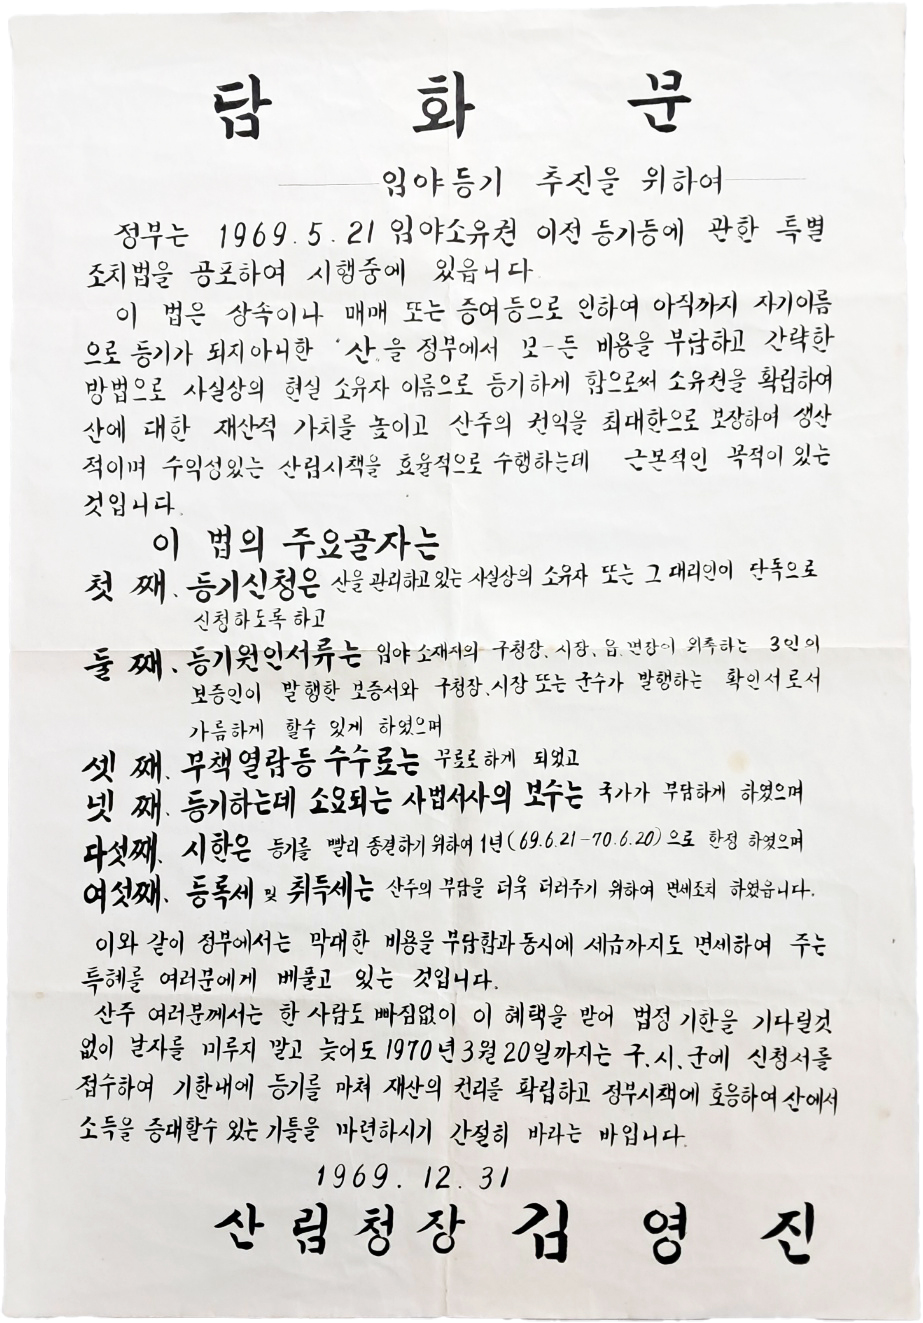 담 화 문
임야등기 추진을 위하여
정부는 1969.5.21 임야소유권 이전 등기등에 관한 특별
조치법을 공포하여 시행중에 있읍니다.
이 법은 상속이나 매매 또는 증여등으로 인하여 아직까지 자기이름
으로 등기가 되지아니한 "산"을 정부에서 모-든 비용을 부담하고 간략한
방법으로 사실상의 현실 소유자 이름으로 등기하게 함으로써 소유권을 확립하여
산에 대한 재산적 가치를 높이고 산주의 권익을 최대한으로 보장하여 생산
적이며 수익성있는 산림시책을 효율적으로 수행하는데 근본적인 목적이 있는
것입니다.
이 법의 주요골자는
첫 째. 등기신청은 산을 관리하고있는 사실상의 소유자 또는 그 대리인이 단독으로
신청하도록 하고
둘 째. 등기원인서류는 임야 소재지의 구청장. 시장. 읍.면장이 위촉하는 3인의
보증인이 발행한 보증서와 구청장.시장 또는 군수가 발행하는 확인서로서
가름하게 할수 있게 하였으며
셋 째. 부책열람등 수수료는 무료로하게 되었고
넷 째. 등기하는데 소요되는 사법서사의 보수는 국가가 부담하게 하였으며
다섯째. 시한은 등기를 빨리 종결하기위하여 1년(69.6.21-70.6.20)으로 한정 하였으며
여섯째. 등록세 및 취득세는 산주의 부담을 더욱 더러주기 위하여 면세조치 하였읍니다.
이와 같이 정부에서는 막대한 비용을 부담함과동시에 세금까지도 면세하여 주는
특혜를 여러분에게 베풀고 있는 것입니다.
산주 여러분께서는 한 사람도 빠짐없이 이 혜택을 받어 법정 기한을 기다릴것
없이 날자를 미루지 말고 늦어도 1970년3월20일까지는 구.시.군에 신청서를
접수하여 기한내에 등기를 마쳐 재산의 권리를 확립하고 정부시책에 호응하여 산에서
소득을 증대할수 있는 기틀을 마련하시기 간절히 바라는 바입니다.
1969. 12. 31
산림청장 김 영 진